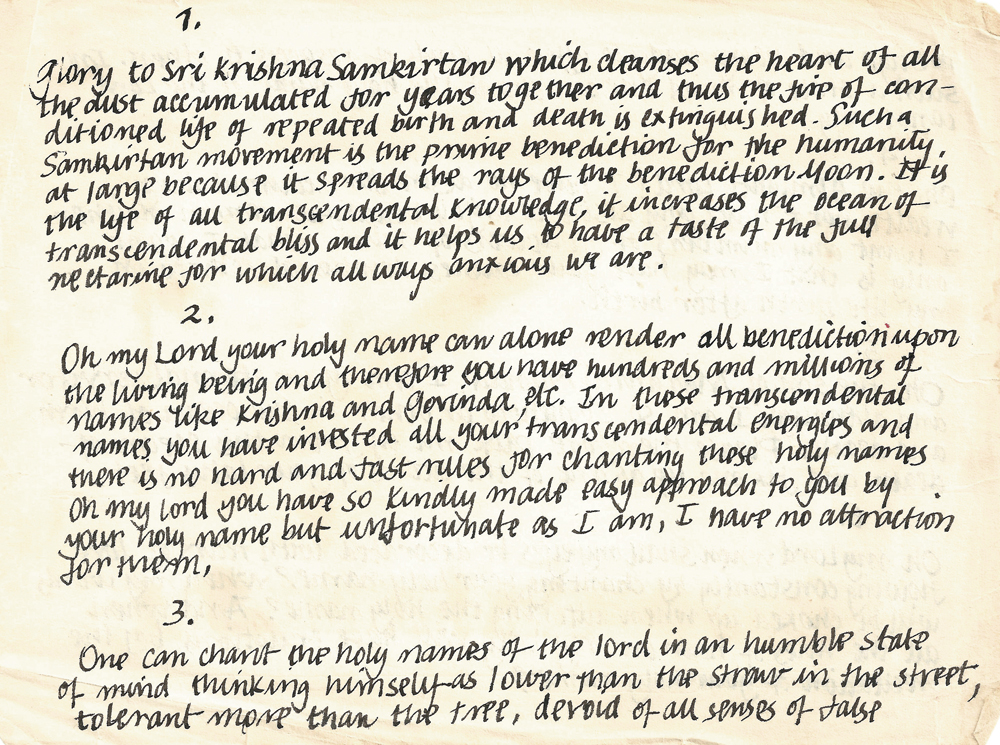 1.
Glory to Sri Krishna Samkirtan which cleanses the heart of all
the dust accumulated for years together and thus the fire of con-
ditioned life of repeated birth and death is extinguished. Such a
Samkirtan movement is the prime benediction for the humanity,
at large because it spreads the rays of the benediction Moon. It is
the life of all transcendental knowledge, it increases the ocean of
transcendental bliss and it helps us to have a taste of the full
nectarine for which all ways anxious we are.
2.
Oh my Lord, your holy name can alone render all benediction upon
the living being and therefore you have hundreds and millions of
names like Krishna and Govinda, etc. In these transcendental
names, you have invested all your transcendental energies and
there is no hard and fast rules for chanting these holy names
Oh my lord you have so kindly made easy approach to you by
your holy name but unfortunate as I am, I have no attraction
for them,
3.
One can chant the holy names of the lord in an humble state
of mind thinking himself as lower than the straw in the street,
tolerant more than the tree, devoid of all senses of false